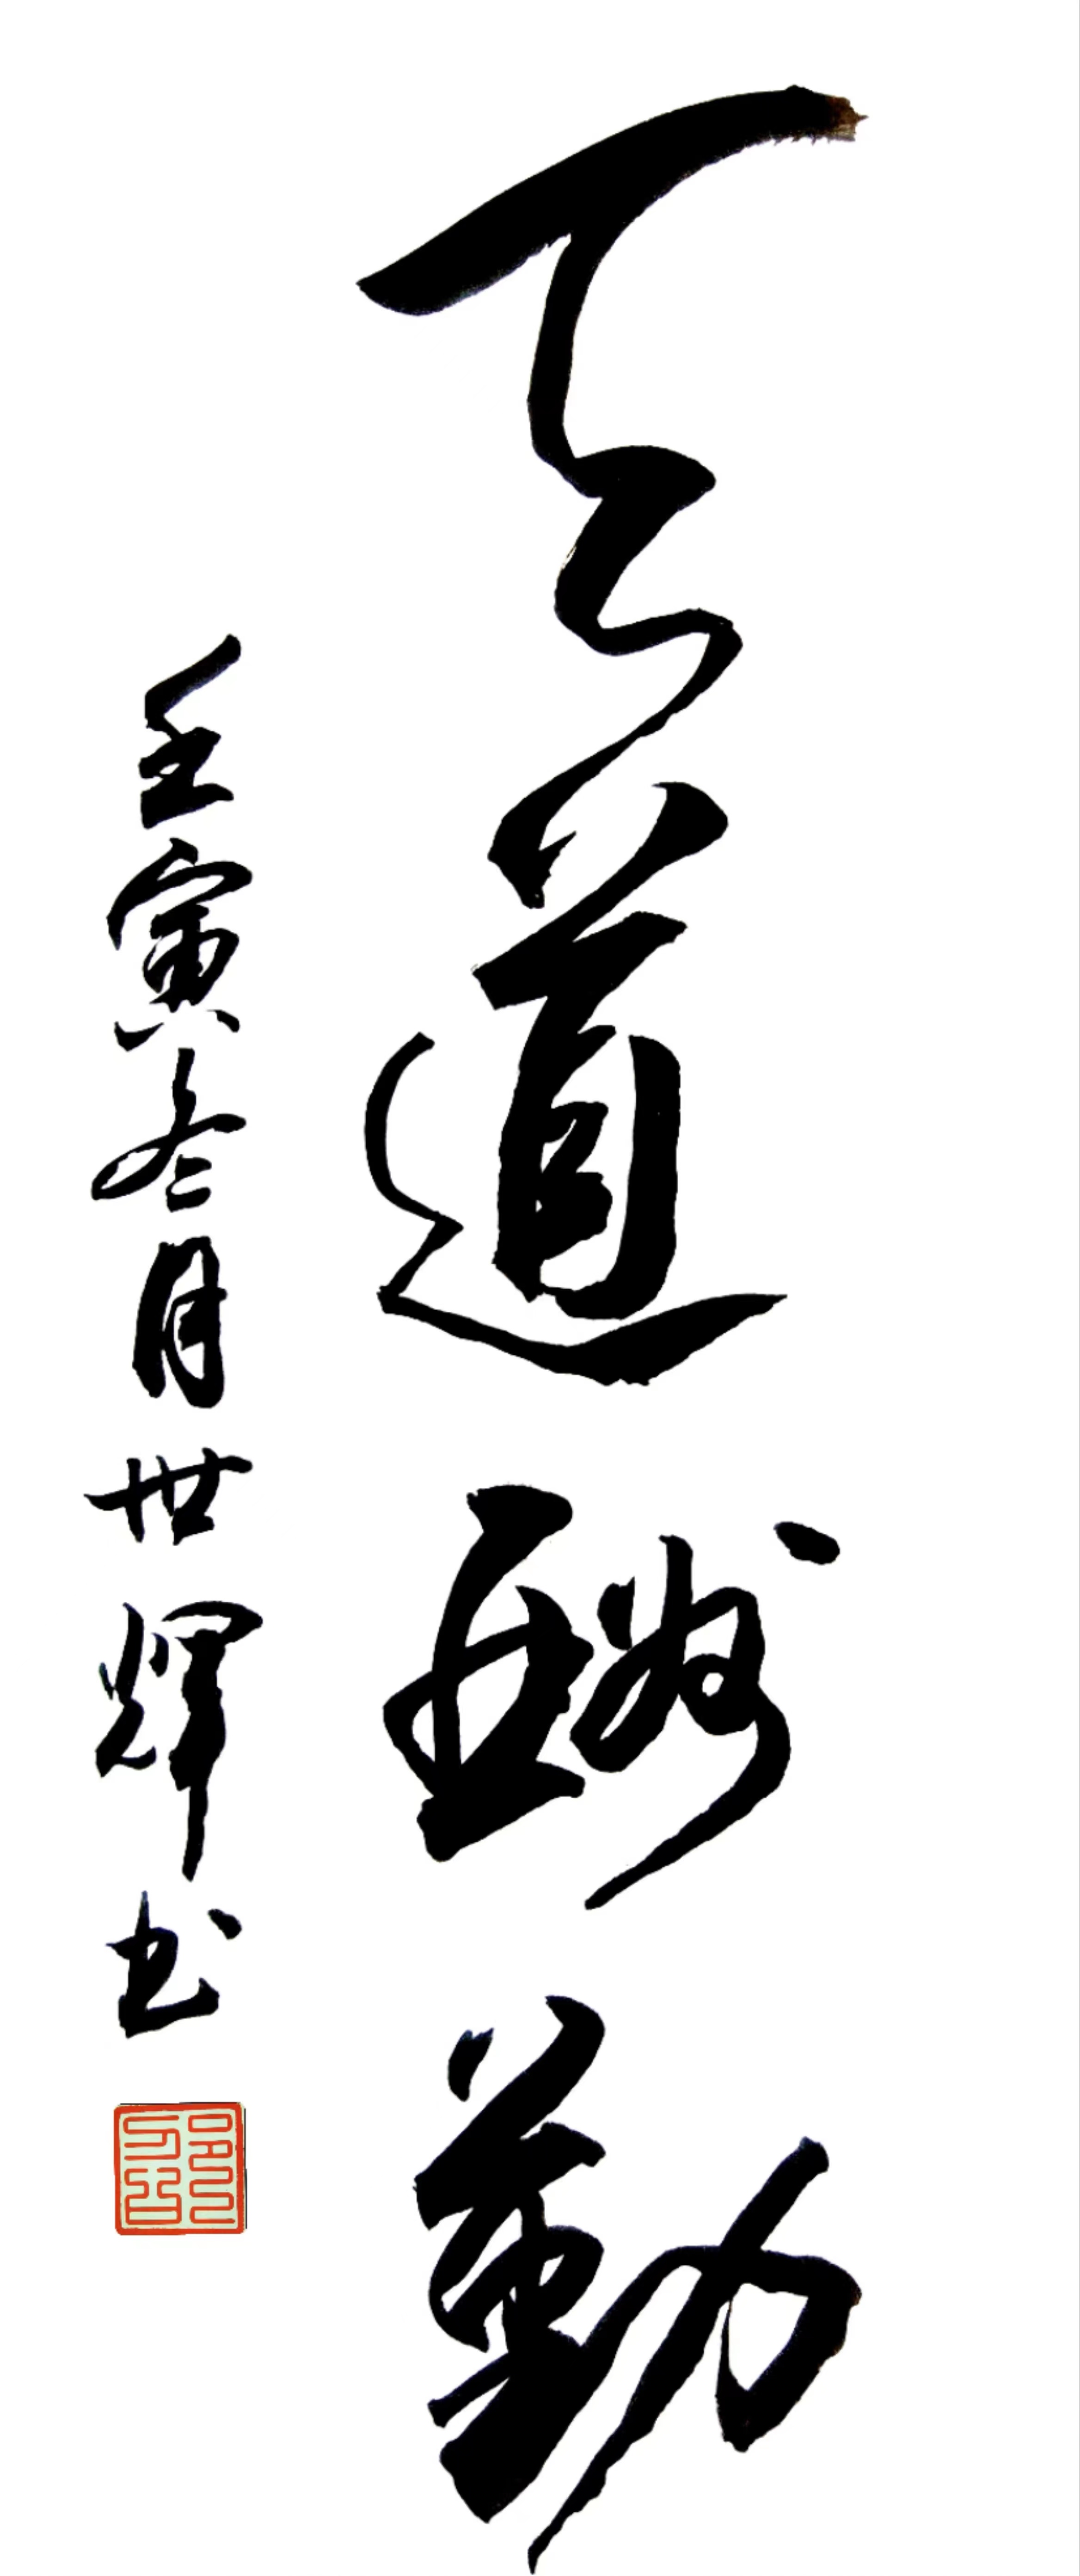 天道酬勤
壬寅冬月世辉书